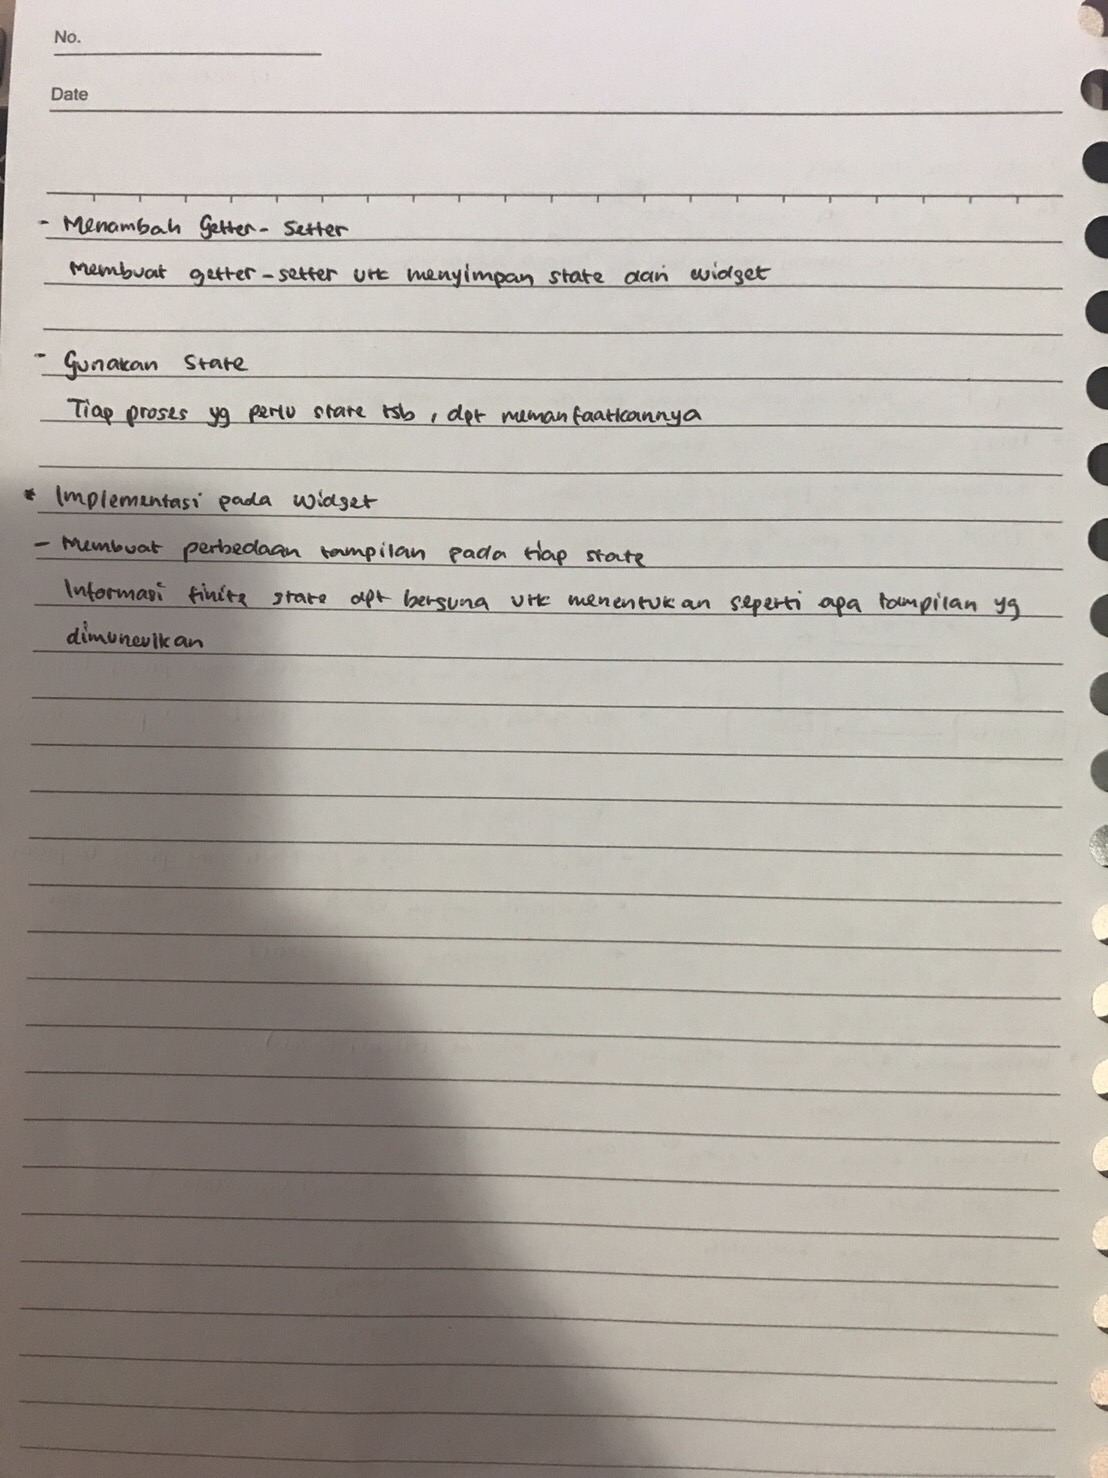 No.
Date
- Menambah Getter - Setter
Membuat getter - setter utk menyimpan state dari widget
- Gunakan State
Tiap proses yg perlu state tsb, dpt memanfaatkannya
* Implementasi pada widget
- Membuat perbedaan tampilan pada tiap state
Informasi finite state dpt berguna utk menentukan seperti apa tampilan yg
dimunculkan